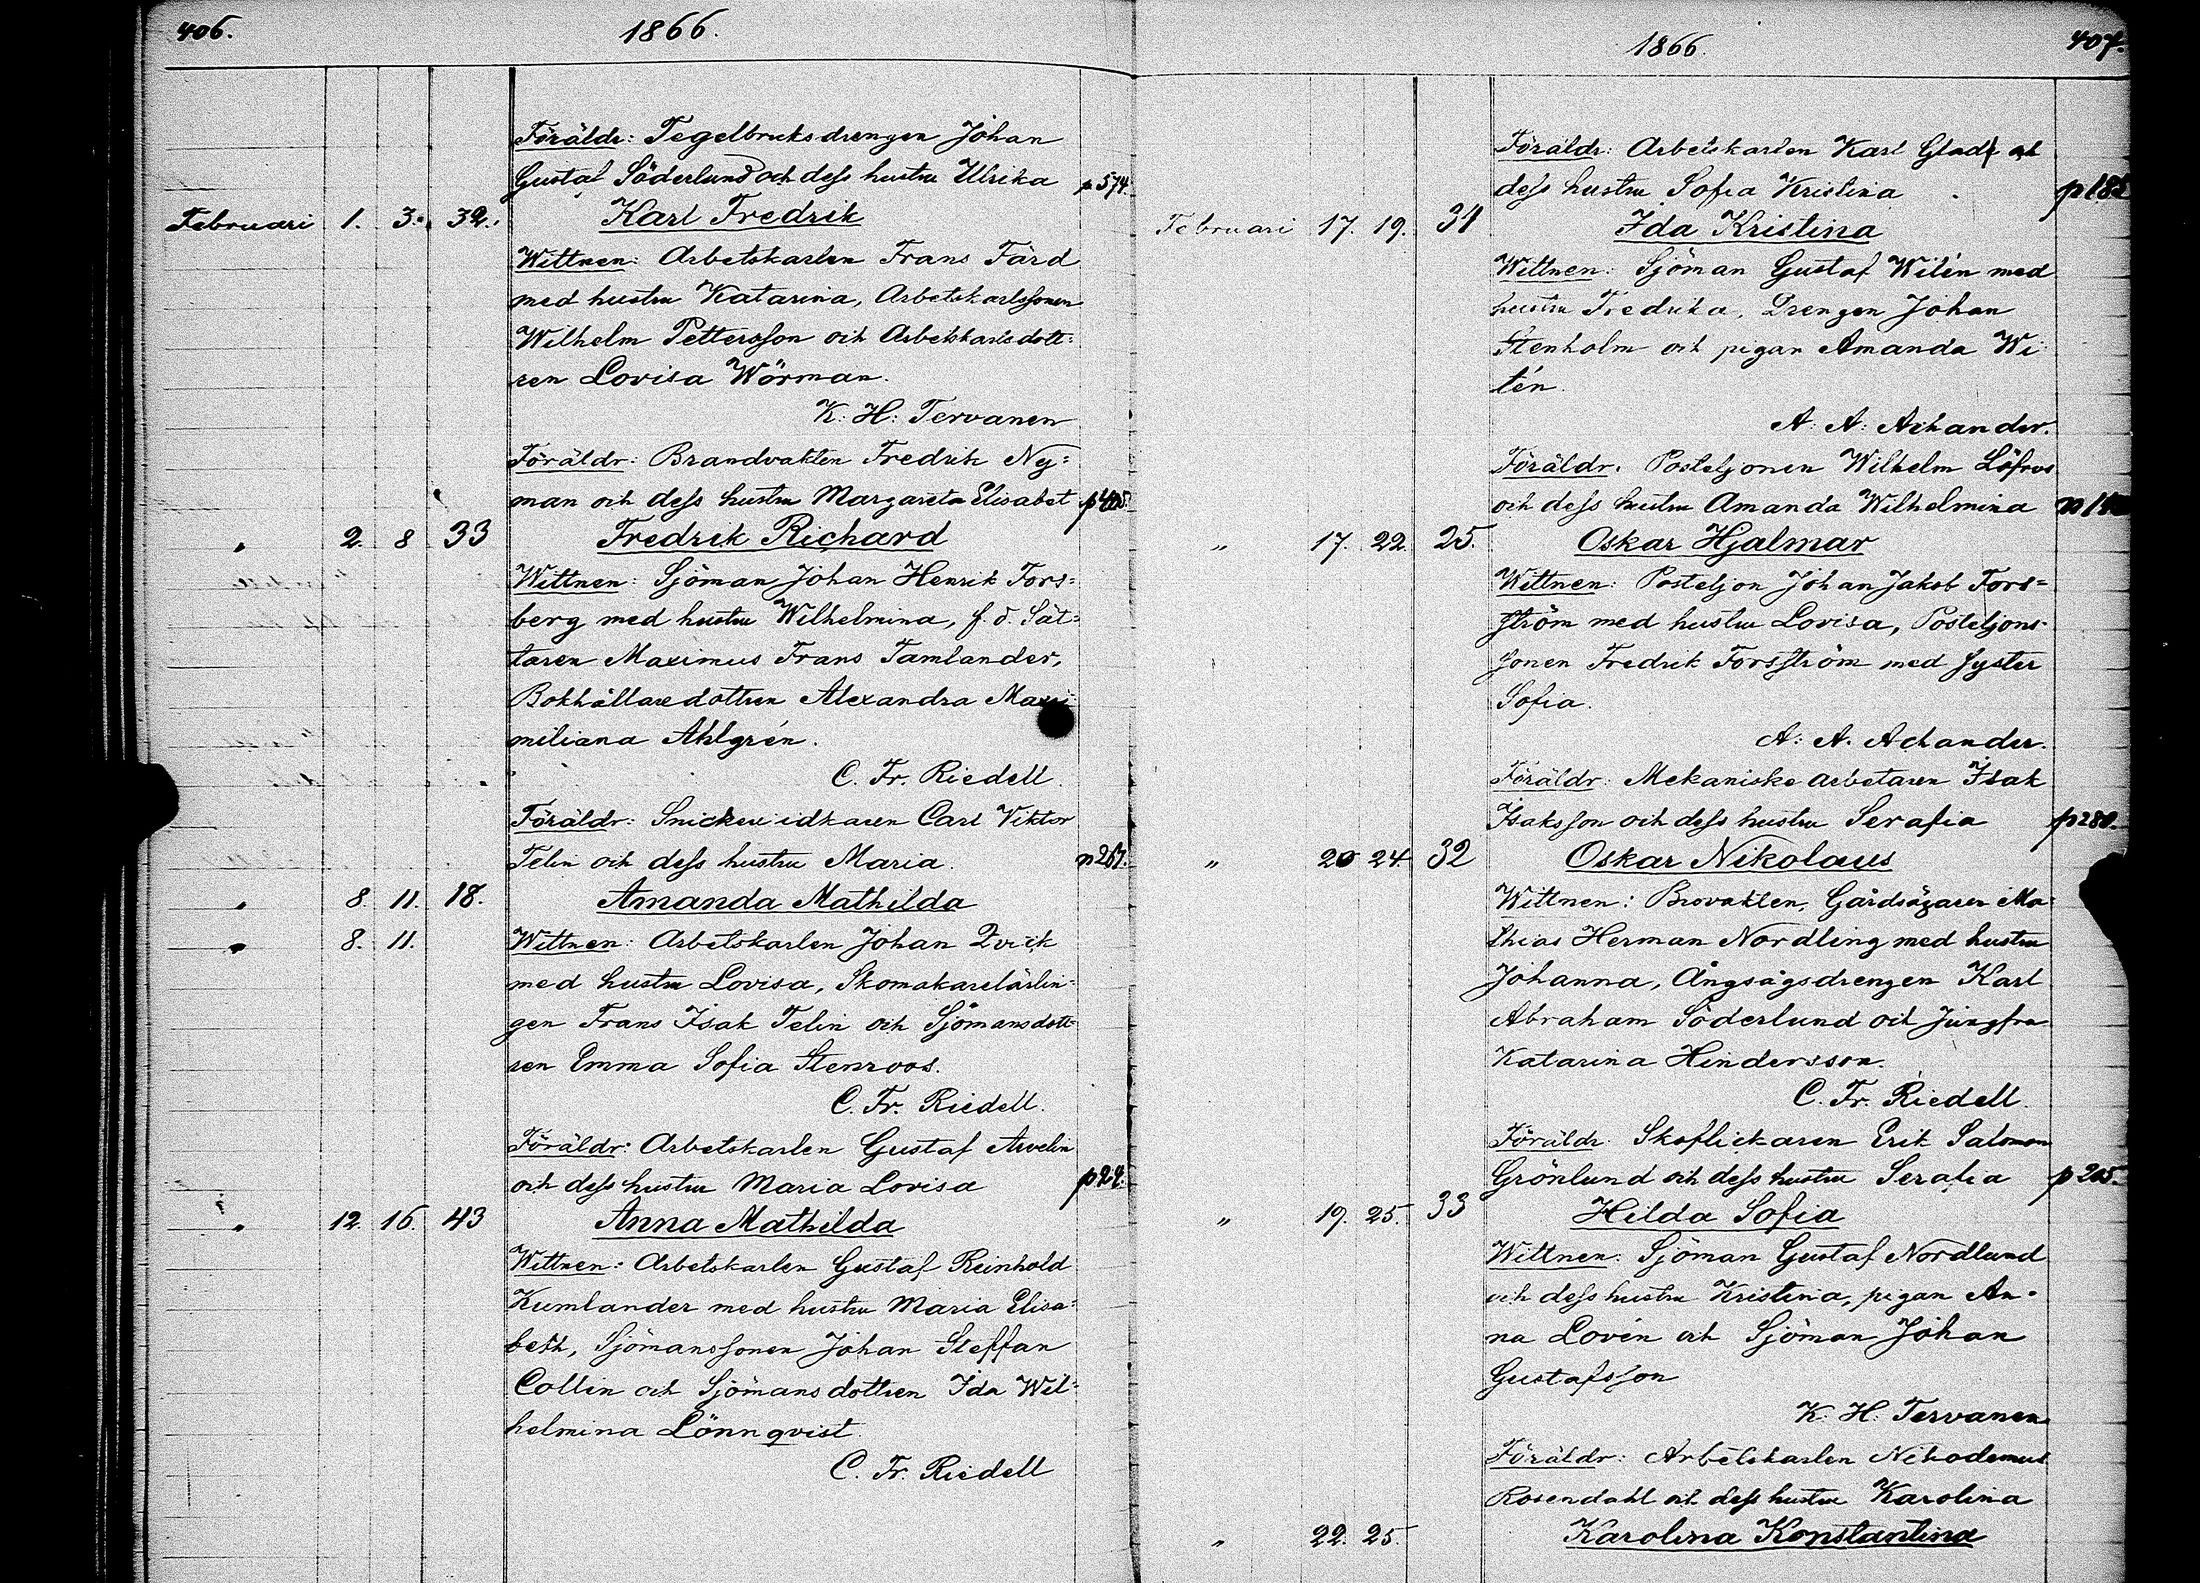 406.
1866.
Föräldr: Tegelbruksdrengen Johan
Gustaf Söderlund och dess hustru Ulrika p 574.
Februari 1. 3. 32. Karl Fredrik
Wittnen: Arbetskarlen Frans Färd
med hustru Katarina, Arbetskarlssonen
Wilhelm Pettersson och Arbetskarlsdott=
ren Lovisa Wörman.
K: H: Tervanen
Föräldr: Brandvakten Fredrik Ny=
man och dess hustru Margareta Elisabet
" 2. 8 33 Fredrik Richard
Wittnen: Sjöman Johan Henrik Fors=
berg med hustru Wilhelmina, f. d. Sät=
taren Maximus Frans Tamlander,
Bokhållaredottren Alexandra Maxi=
miliana Ahlgrén.
C. Fr. Riedell.
Föräldr: Snickeriidkaren Carl Viktor
Telin och dess hustru Maria.
" 8. 11. 18. Amanda Mathilda
" 8. 11. Wittnen: Arbetskarlen Johan Qvick
med hustru Lovisa, Skomakarelärlin=
gen Frans Isak Telin och Sjömansdott=
ren Emma Sofia Stenroos.
C. Fr. Riedell.
Föräldr: Arbetskarlen Gustaf Arvelin
och dess hustru Maria Lovisa
" 12. 16. 43 Anna Mathilda
Wittnen: Arbetskarlen Gustaf Reinhold
Kumlander med hustru Maria Elisa=
beth, Sjömanssonen Johan Steffan
Collin och Sjömansdottren Ida Wil=
helmina Lönnqvist.
C. Fr. Riedell
1866.
407.
Föräldr: Arbetskarlen Karl Glad och
dess hustru Sofia Kristina
Februari 17. 19. 31 Ida Kristina
Wittnen: Sjöman Gustaf Witén med
hustru Fredrika, Drengen Johan
Stenholm och pigan Amanda Wi
tén.
A: A: Achander.
Föräldr: Posteljonen Wilhelm Löfroos
och dess hustru Amanda Wilhelmina
" 17. 22. 25. Oskar Hjalmar
Wittnen: Posteljon Johan Jakob Fors=
ström med hustru Lovisa, Posteljons-
sonen Fredrik Forsström med syster
Sofia.
A: A. Achander.
Föräldr: Mekaniske arbetaren Isak
Isaksson och dess hustru Serafia p 280.
" 20 24 32 Oskar Nikolaus
Wittnen: Brovakten, Gårdsägaren Ma=
thias Herman Nordling med hustru
Johanna, Ångsågsdrengen Karl
Abraham Söderlund och Jungfru
Katarina Hindersson.
C. Fr. Riedell.
Föräldr: Skoflickaren Erik Salomon
Grönlund och dess hustru Serafia p 205.
" 19. 25. 33 Hilda Sofia
Wittnen: Sjöman Gustaf Nordlund
och dess hustru Kristina, pigan An-
na Lovén och Sjöman Johan
Gustafsson
K: H: Tervanen
Föräldr: Arbetskarlen Nikodemus
Rosendahl och dess hustru Karolina
" 22. 25. Karolina Konstantina